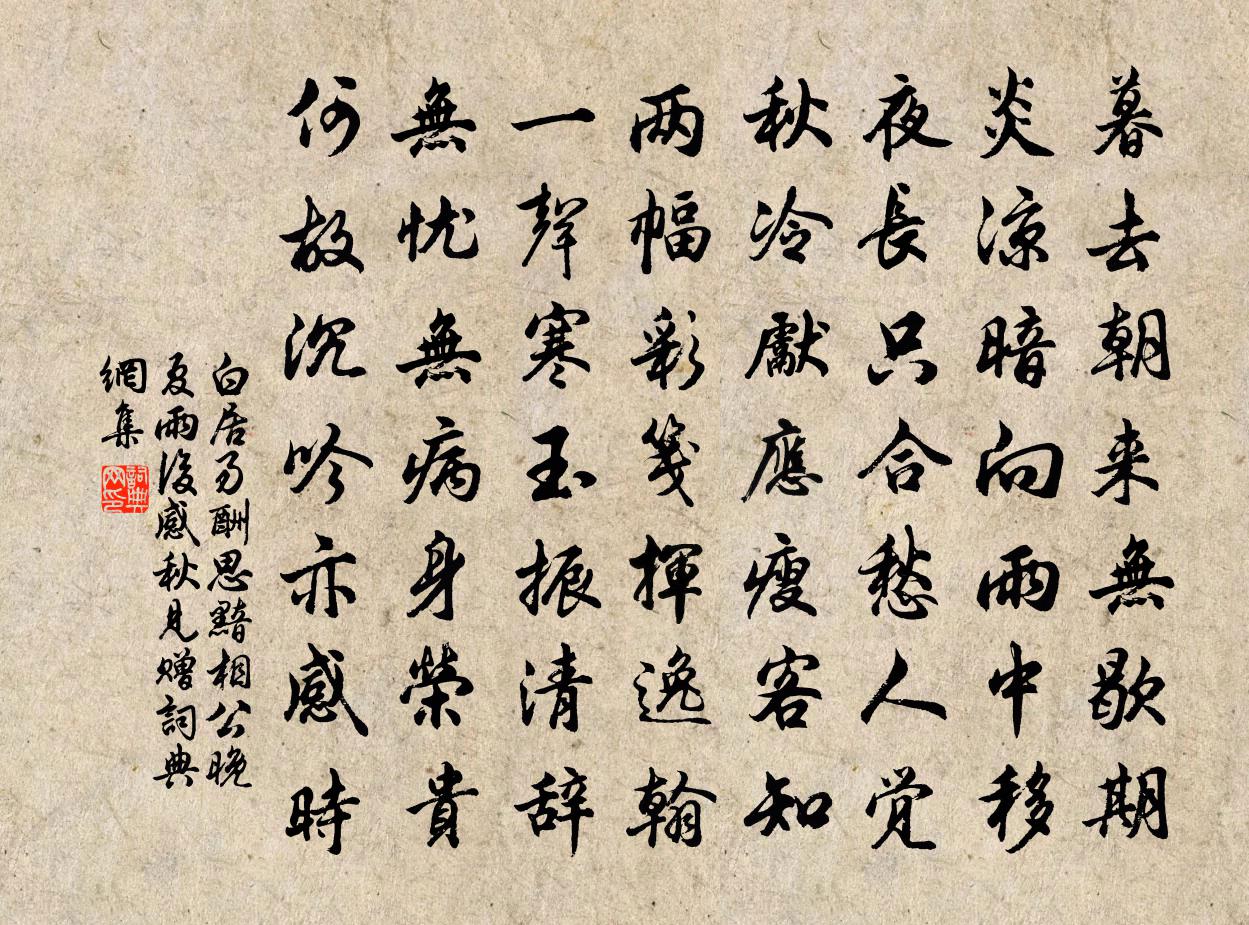 暮去朝来無歇期
炎涼暗向雨中移
夜長只合愁人覚
秋冷獻應瘦客知
两幅彩箋揮逸翰
一聲寒玉振清辞
無忧無病身榮貴
何故沉吟亦感時
白居易酬思黯相公晚
夏雨後感秋見赠詞典
網集
詞典
网印